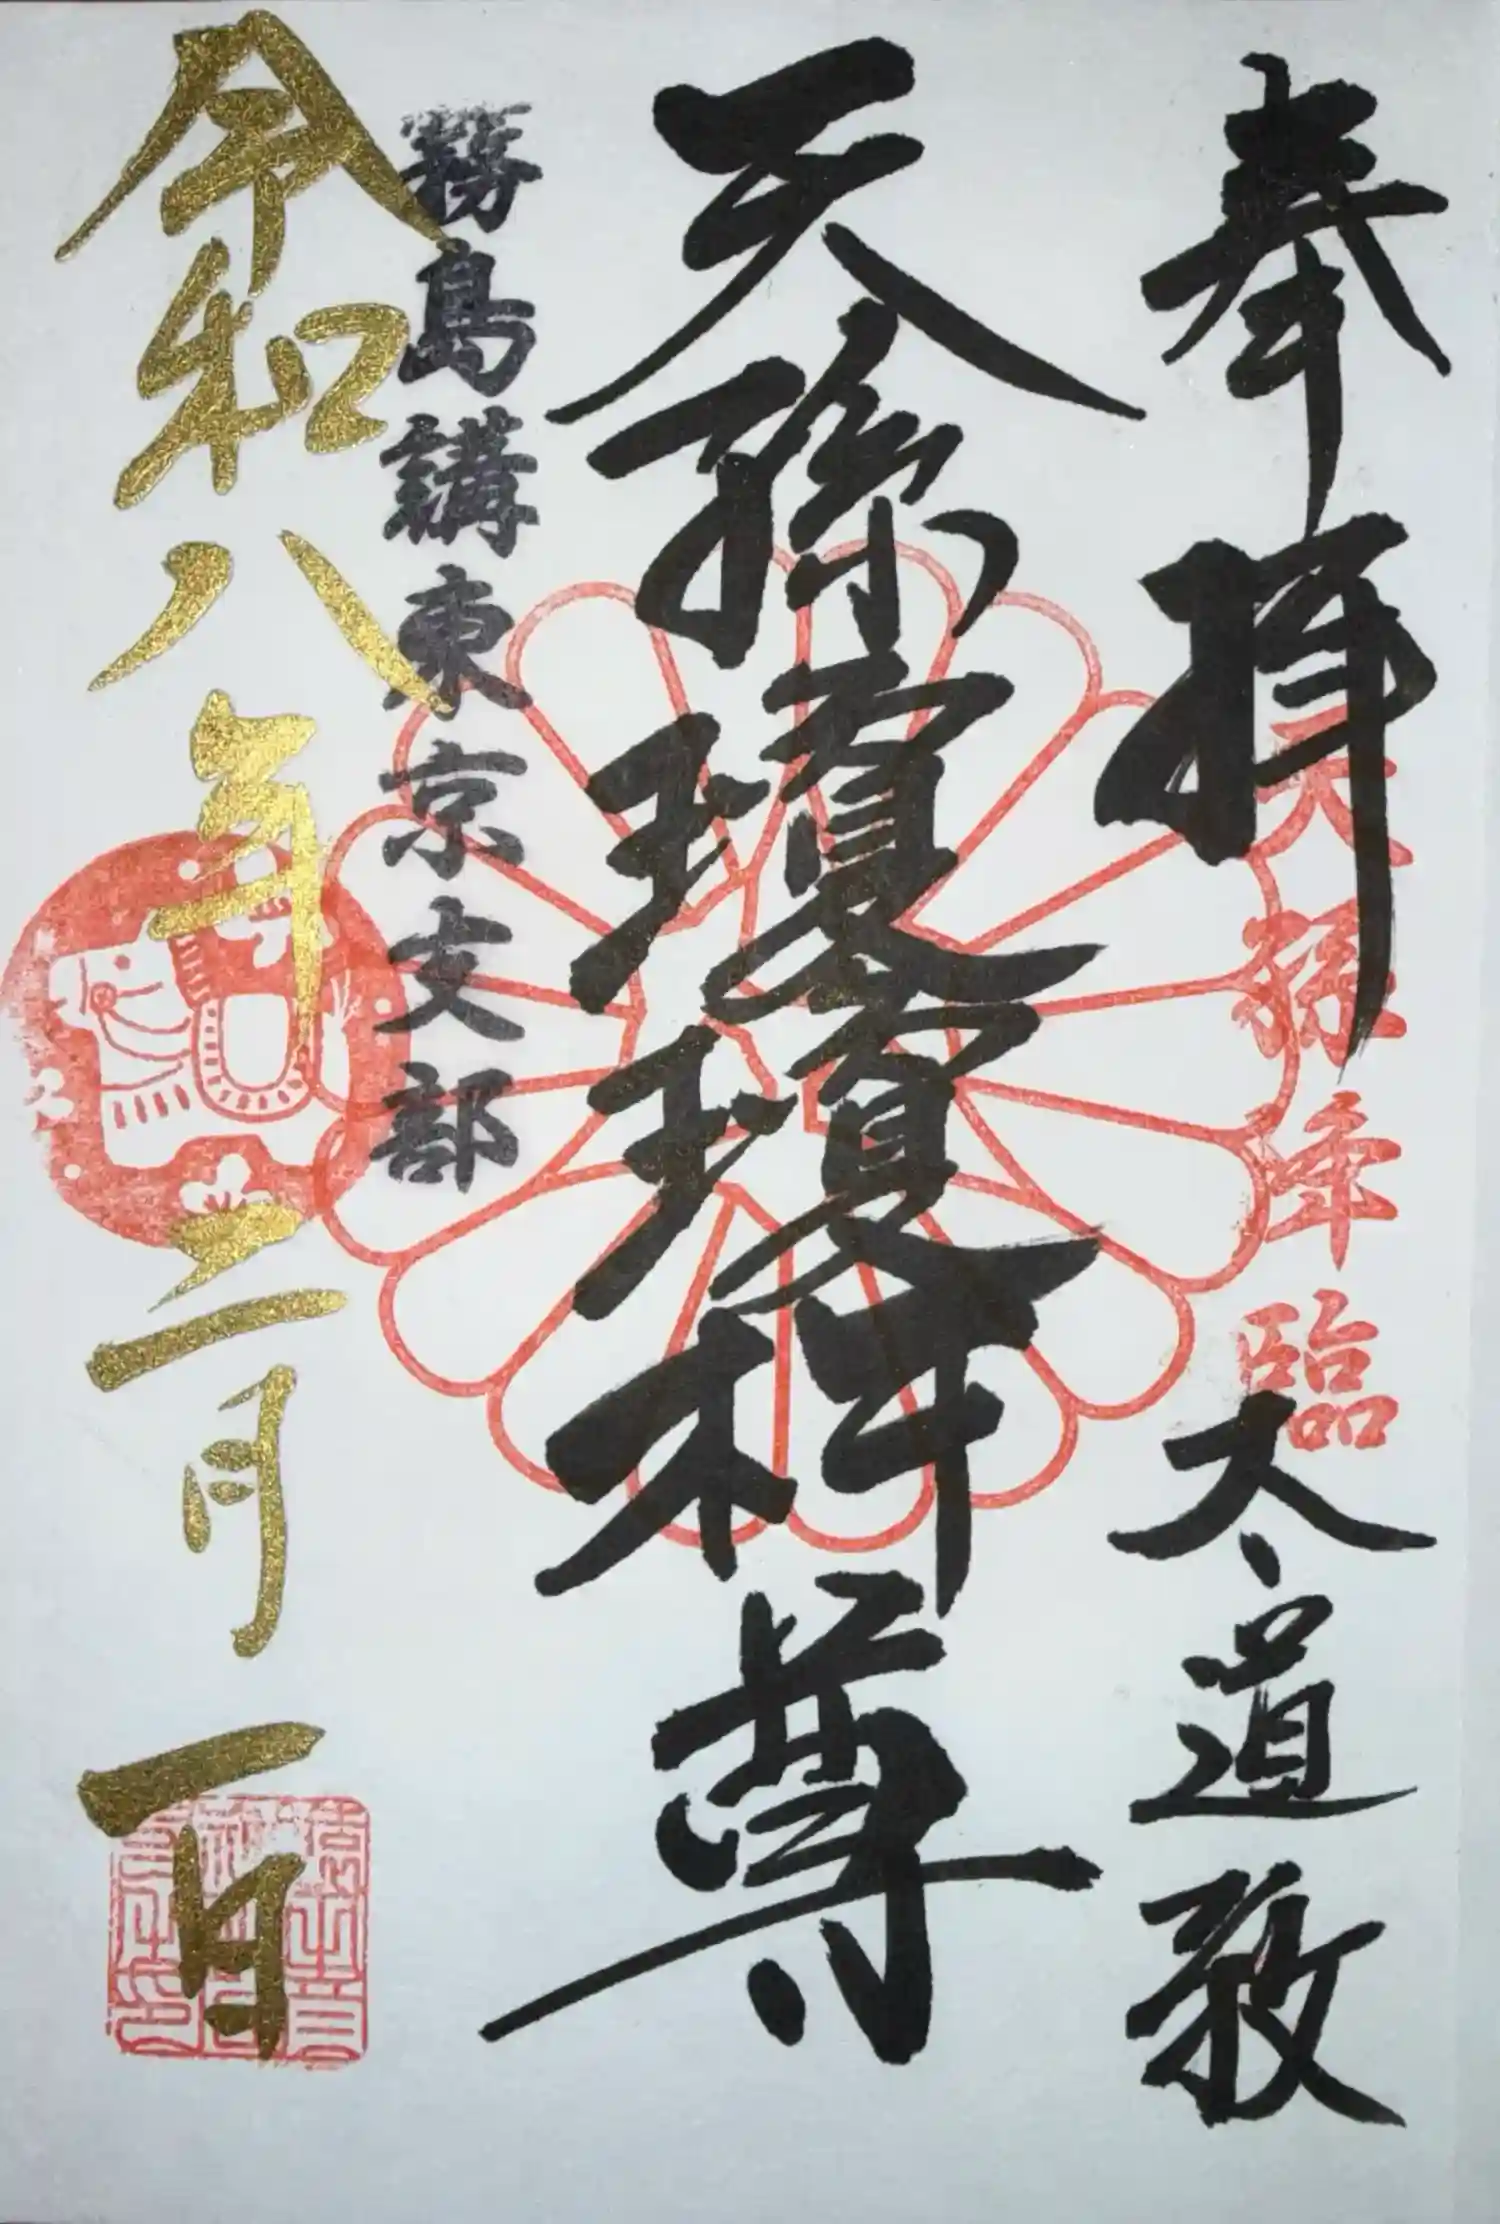 奉拝 太道教
天孫降臨
天孫瓊瓊杵尊
霧島講東京支部
令和八年二月一日